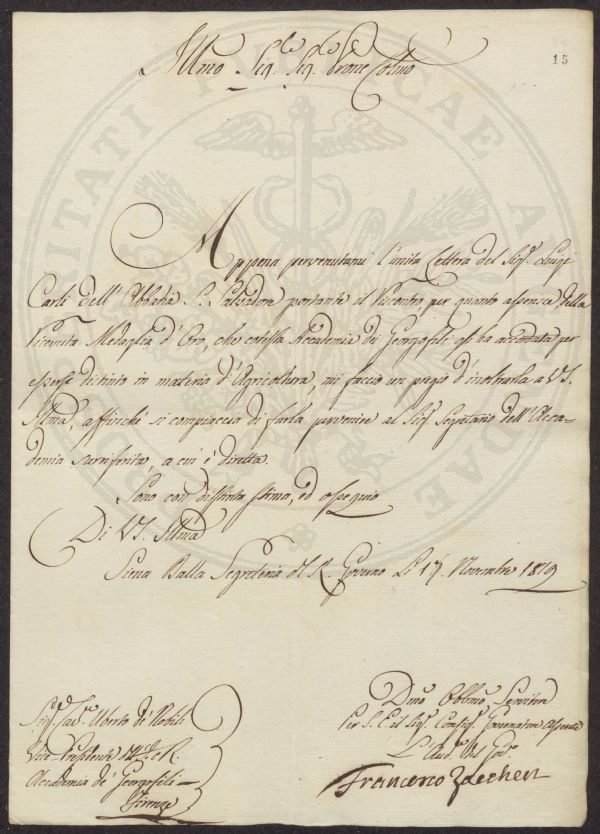 15
Illmo Sig.re Sig.re Prone Colmo
Appena pervenutami l'unita Lettera del Sig.r Luigi
Carli dell'Abbadia S. Salvadore portante il riscontro, per quanto
Ricevuta Medaglia d'Oro, che cotesta Accademia di Georgofili gli ha accordata per
essersi distinto in materia d'Agricoltura, mi faccio un pregio d'inoltrarla a VS.
Illma, affinchè si compiaccia di farla pervenire al Sig.r Segretario dell'Acca-
demia surriferita, a cui è diretta.
Sono con distinta stima, ed ossequio
Di VS. Illma
Siena Dalla Segreteria del R. Governo Li 17. Novembre 1819
Sig.r Cav.r Uberto de' Nobili
Vice-Presidente dell'I. e R.
Accademia de' Georgofili =
Firenze
Dmo Obbmo Servitore
Per S. E. il Sig.r Consig.r Governatore Assente
L'Aud.r del Gov.o
Francesco